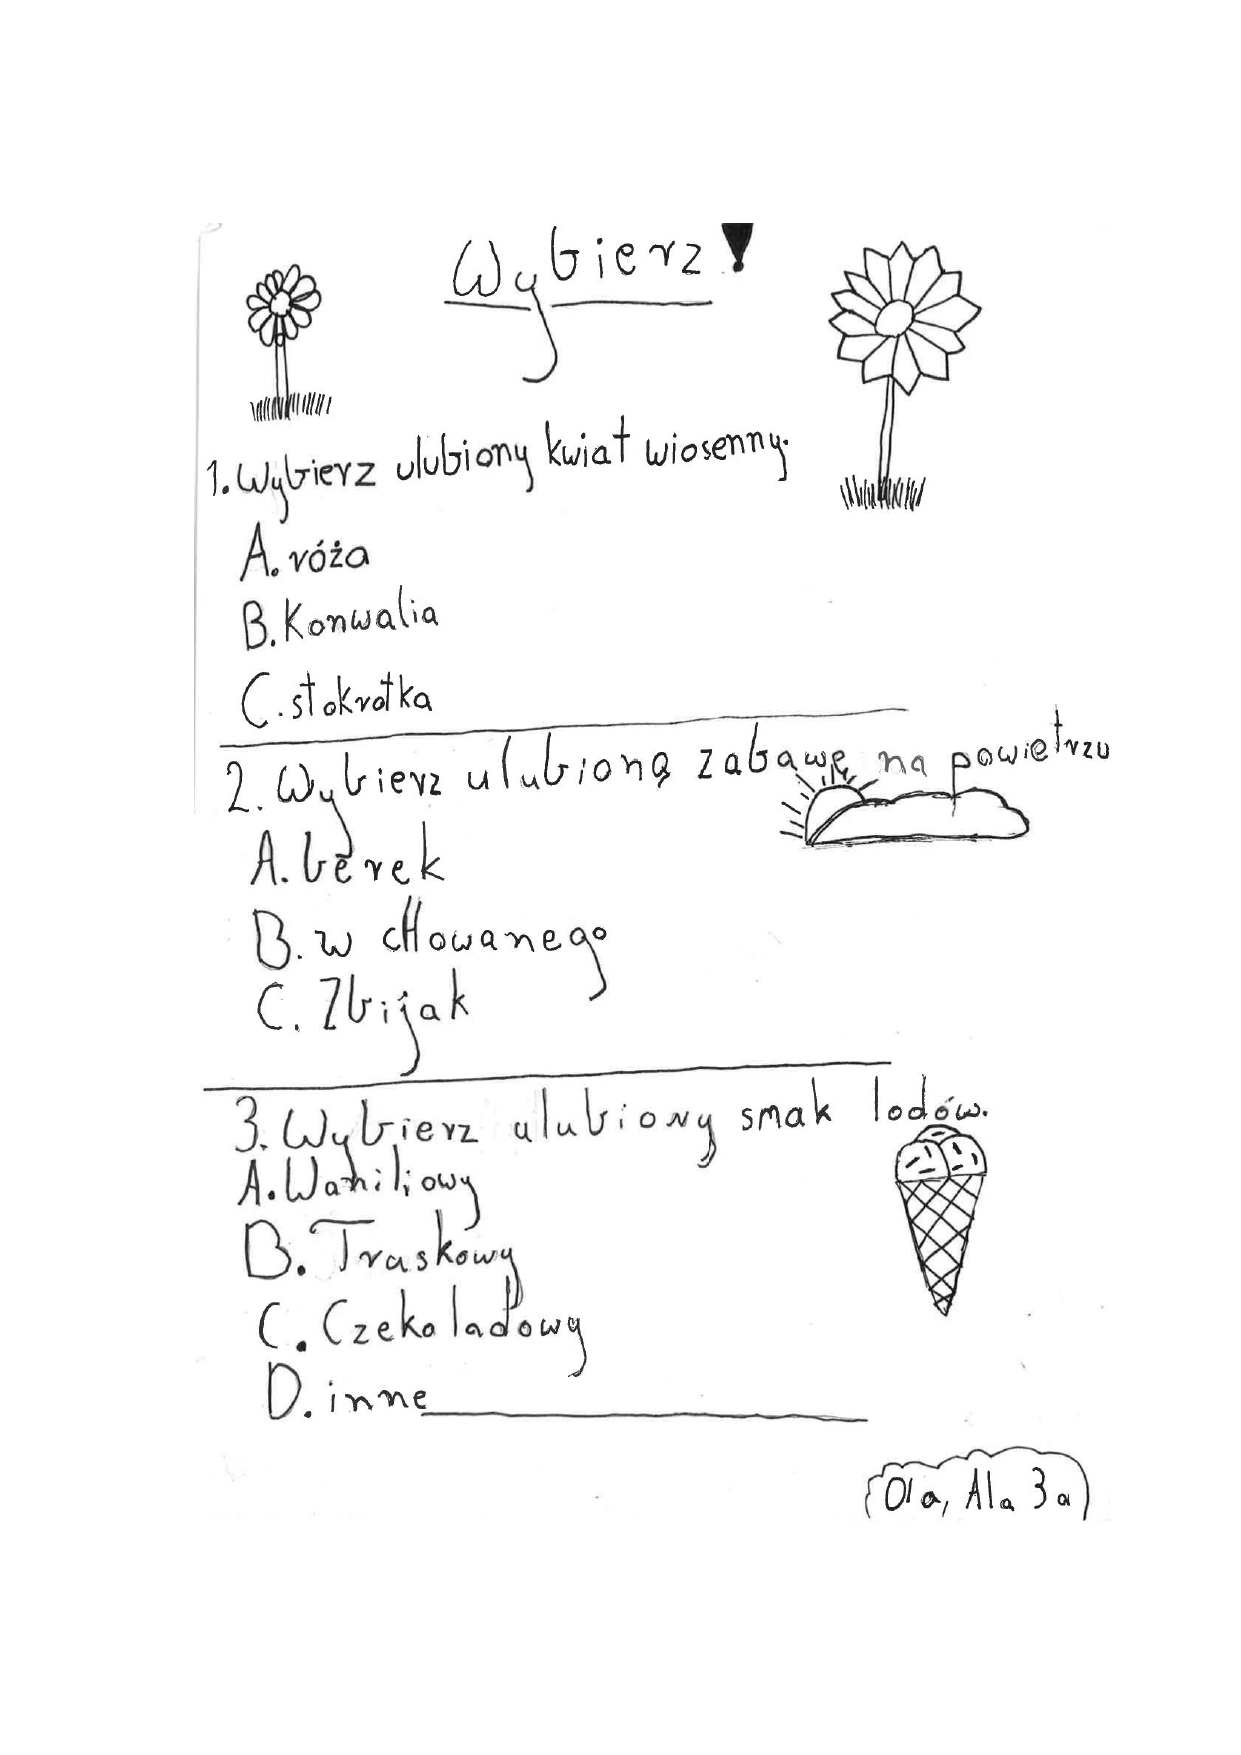 Wybierz!
1. Wybierz ulubiony kwiat wiosenny.
A. róża
B. Konwalia
C. stokrotka
2. Wybierz ulubioną zabawę na powietrzu
A. berek
B. w chowanego
C. Zbijak
3. Wybierz ulubiony smak lodów.
A. Waniliowy
B. Traskowy
C. Czekoladowy
D. inne
Ola, Ala 3a